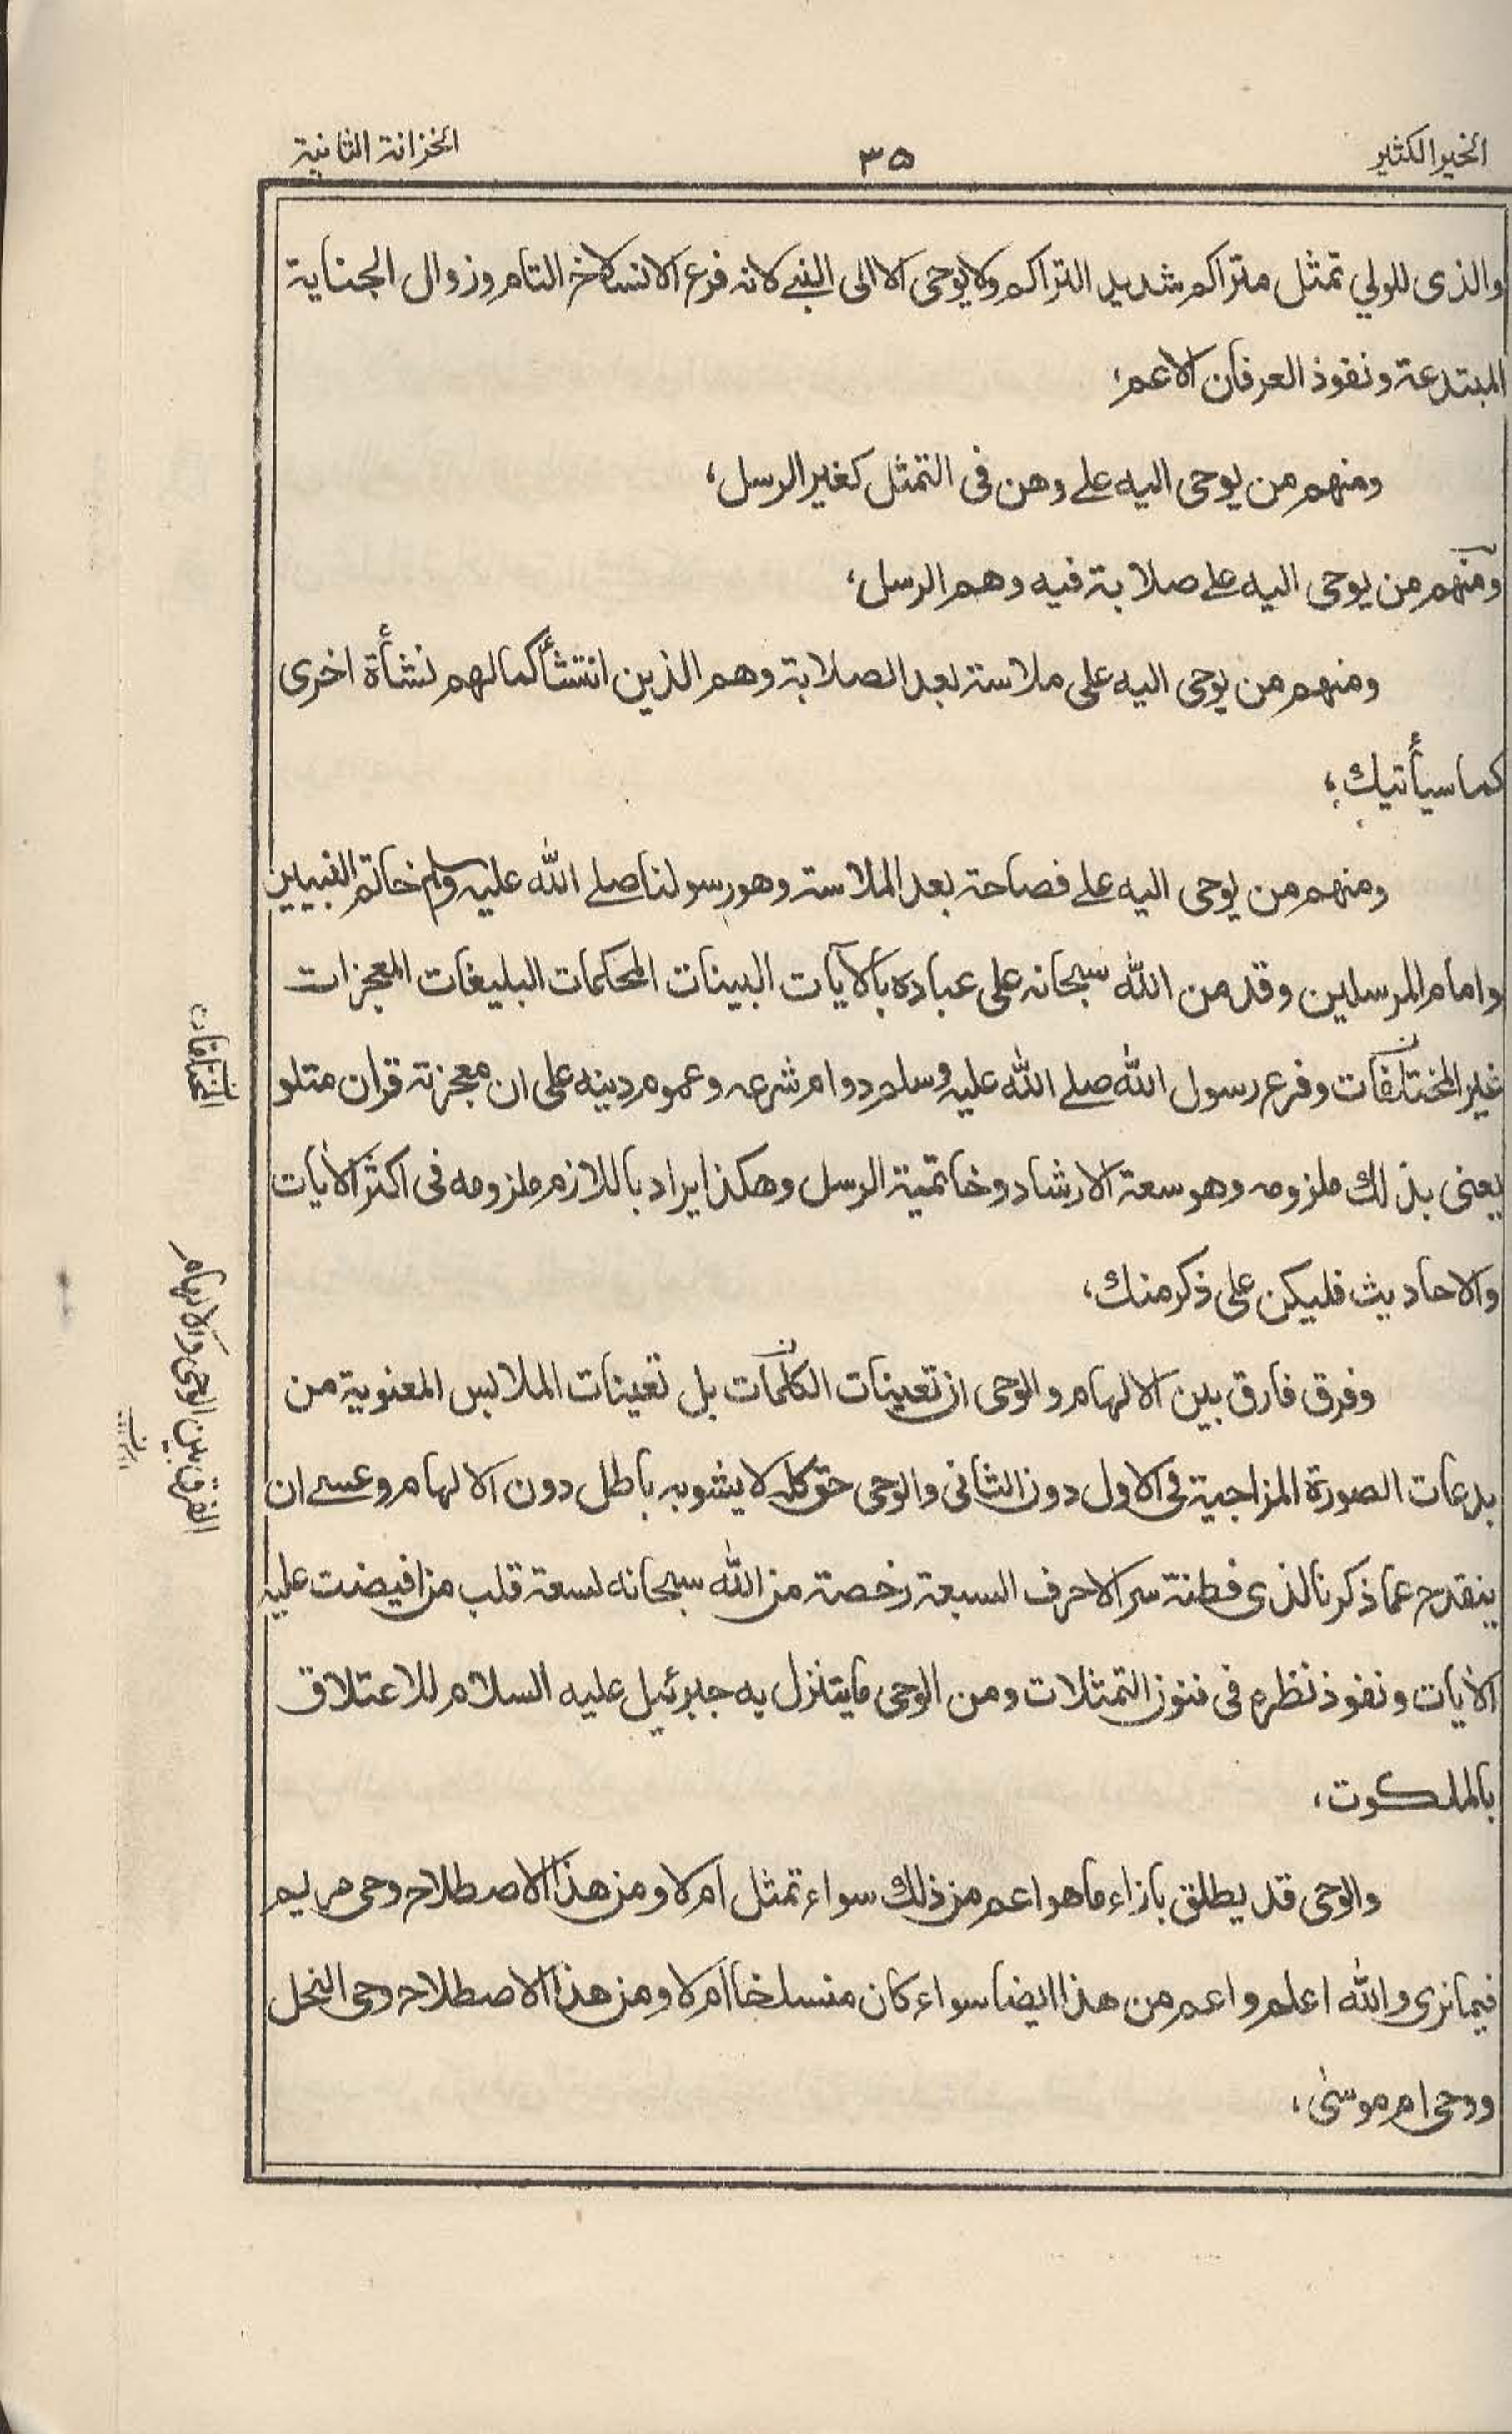 الخير الكثير
٣٥
الخزانة الثانية
والذى للولي تمثل متراكم شديد التراكم ولا يوحى الا الى النبى لانه فرع الانسلاخ التام وزوال الجناية
المبتدعة ونفوذ العرفان الاعم،
ومنهم من يوحى اليه على وهن فى التمثل كغير الرسل،
ومنهم من يوحى اليه على صلابة فيه وهم الرسل،
ومنهم من يوحى اليه على ملاسة بعد الصلابة وهم الذين انتشأ كمالهم نشأة اخرى
كما سيأتيك،
ومنهم من يوحى اليه على فصاحة بعد الملاسة وهو رسولنا صلے الله عليه وسلم خاتم النبيين
وامام المرسلين وقد من الله سبحانه على عباده بالآيات البينات المحكمات البليغات المعجزات
غير المختلفات وفرع رسول الله صلے الله عليه وسلم دوام شرعه وعموم دينه على ان معجزته قران متلو
يعنى بذلك ملزومه وهو سعة الارشاد وخاتمية الرسل وهكذا يراد باللازم ملزومه فى اكثر الايات
والاحاديث فليكن على ذكر منك،
وفرق فارق بين الالهام والوحى ان تعينات الكلمات بل تعينات الملابس المعنوية من
بدعات الصورة المزاجية فى الاول دون الثانى والوحى حق كله لا يشوبه باطل دون الالهام وعسى ان
ينقدح عما ذكرنا لذى فطنة سر الاحرف السبعة رخصة من الله سبحانه لسعة قلب من افيضت عليه
الايات ونفوذ نظره فى فنون التمثلات ومن الوحى ما يتنزل به جبرئيل عليه السلام للاعتلاق
بالملكوت،
والوحى قد يطلق بازاء ما هو اعم من ذلك سواء تمثل ام لا ومن هذا الاصطلاح وحى مريم
فيما نرى والله اعلم واعم من هذا ايضا سواء كان منسلخا ام لا ومن هذا الاصطلاح وحى النحل
ووحى ام موسىٰ،
الفرق بين الوحى والالهام